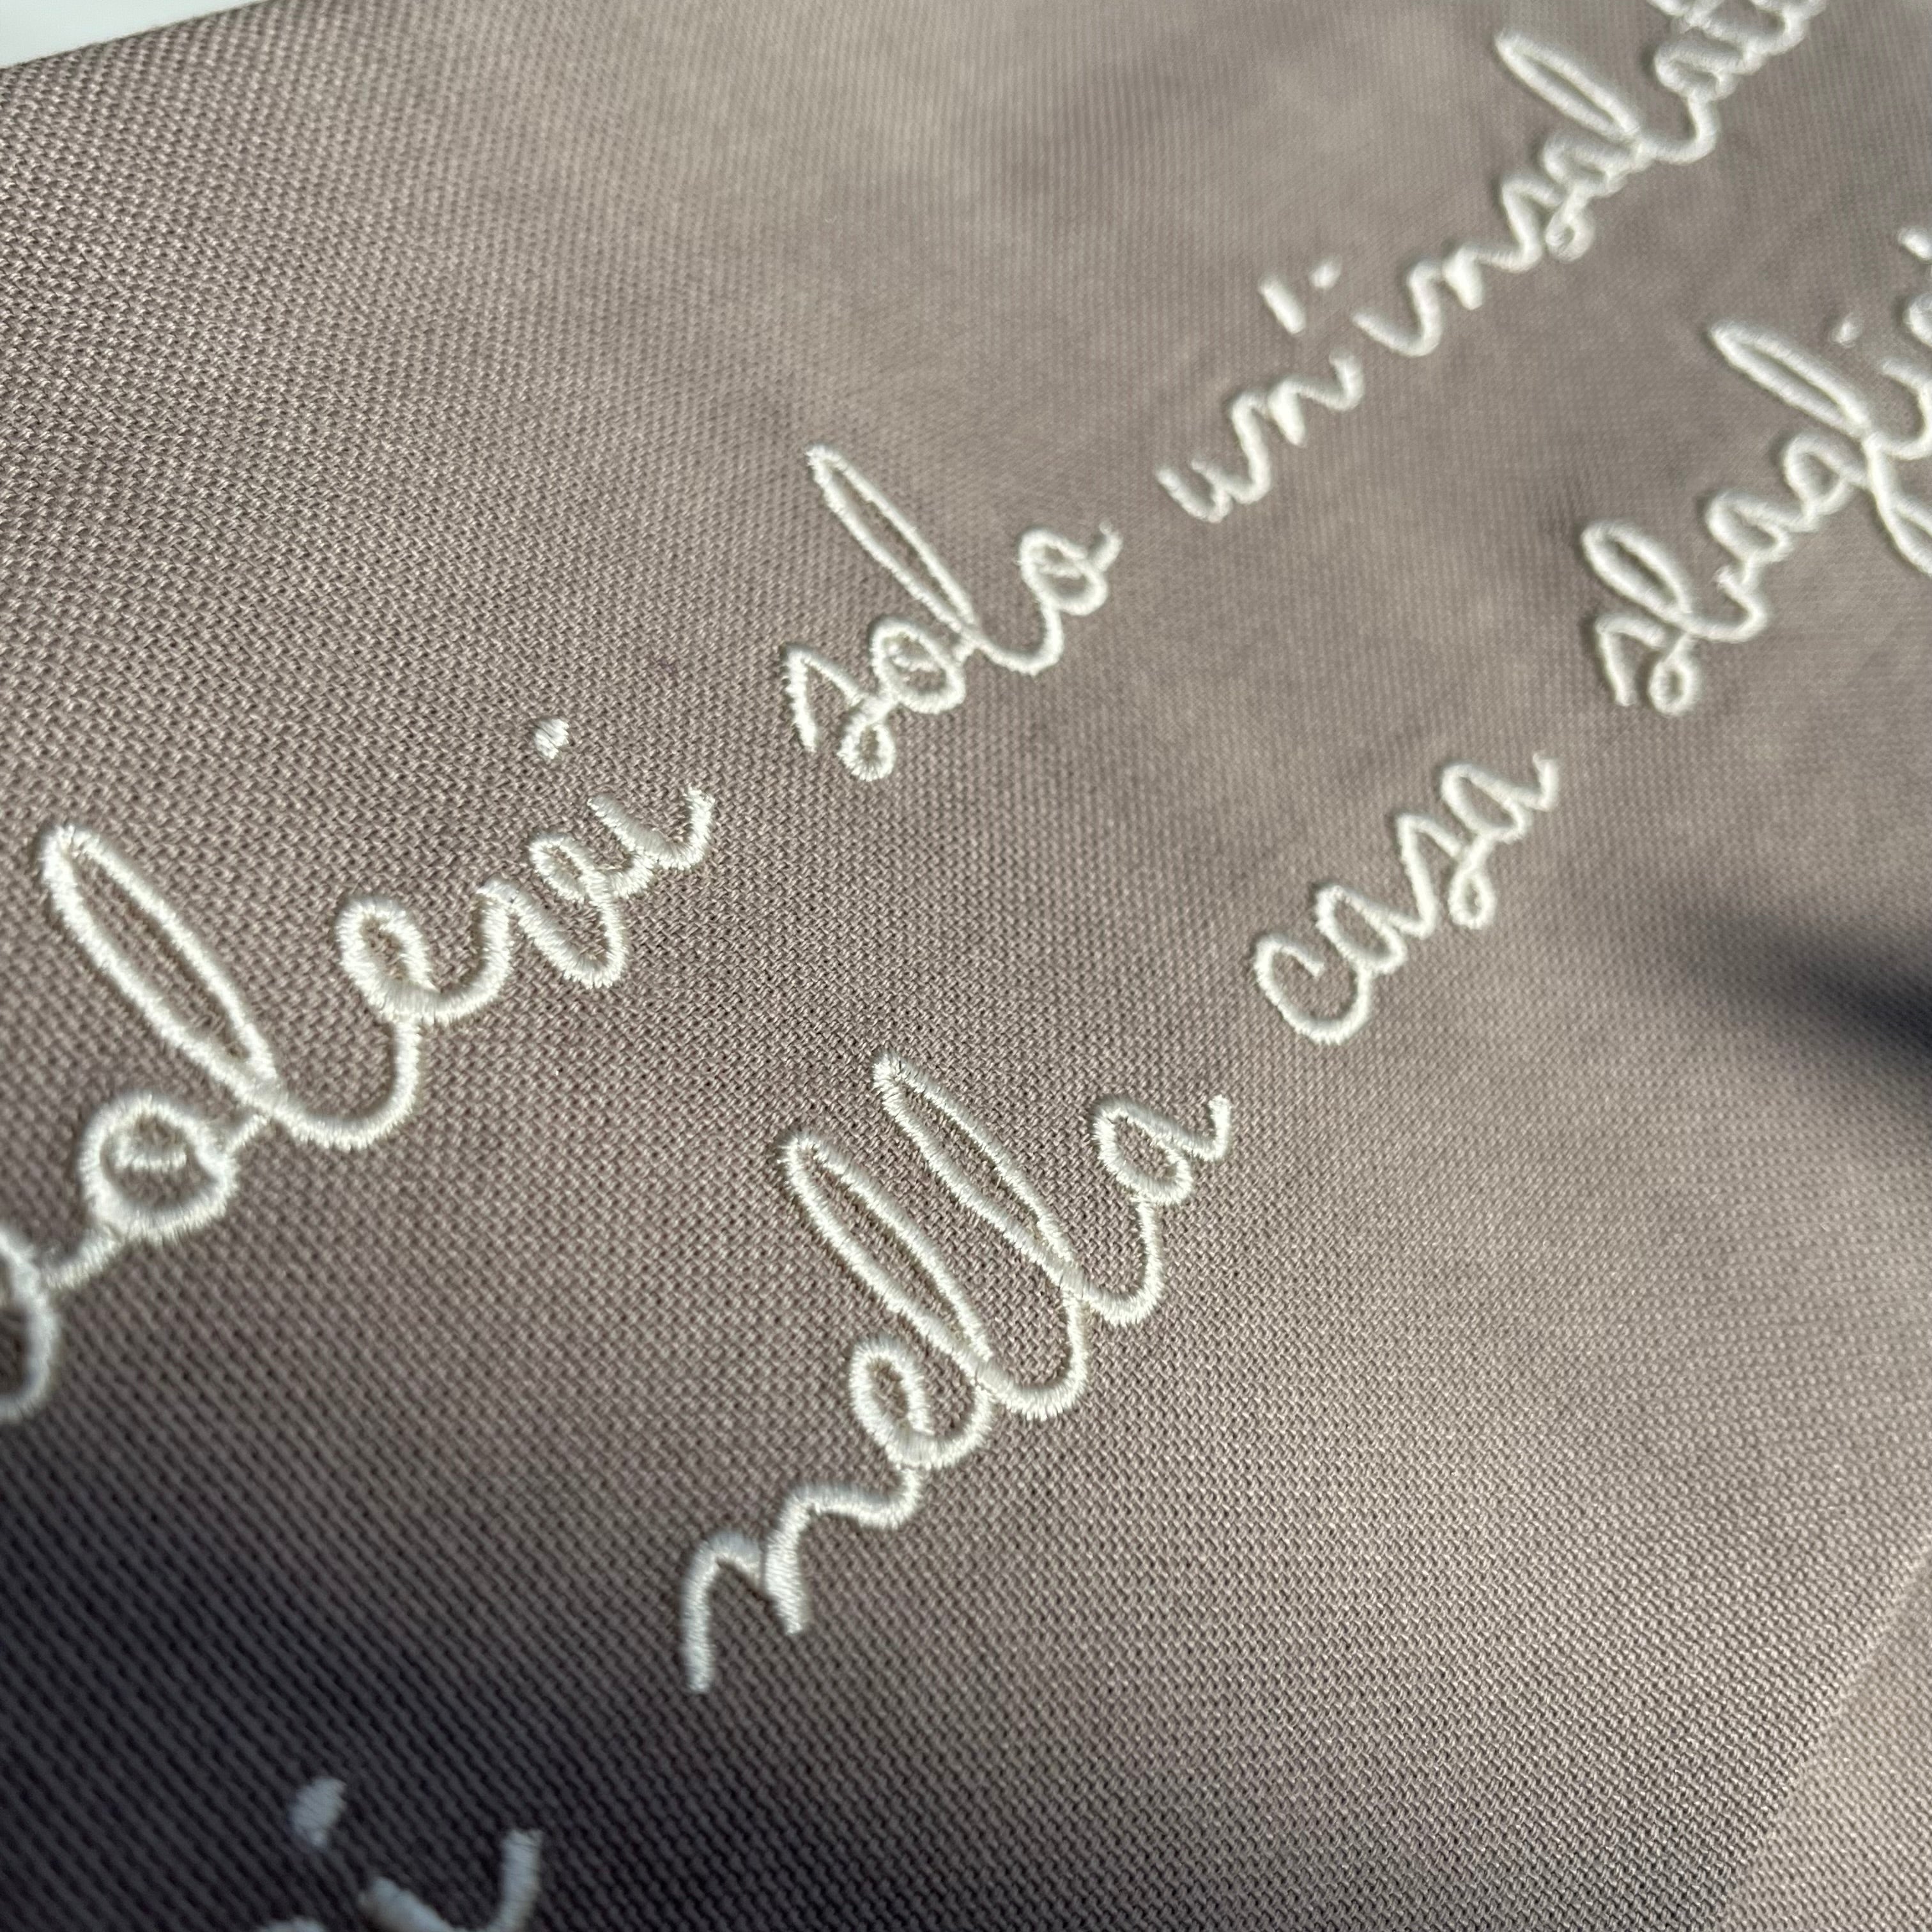 volevi solo un'insalata
nella casa sbagliata